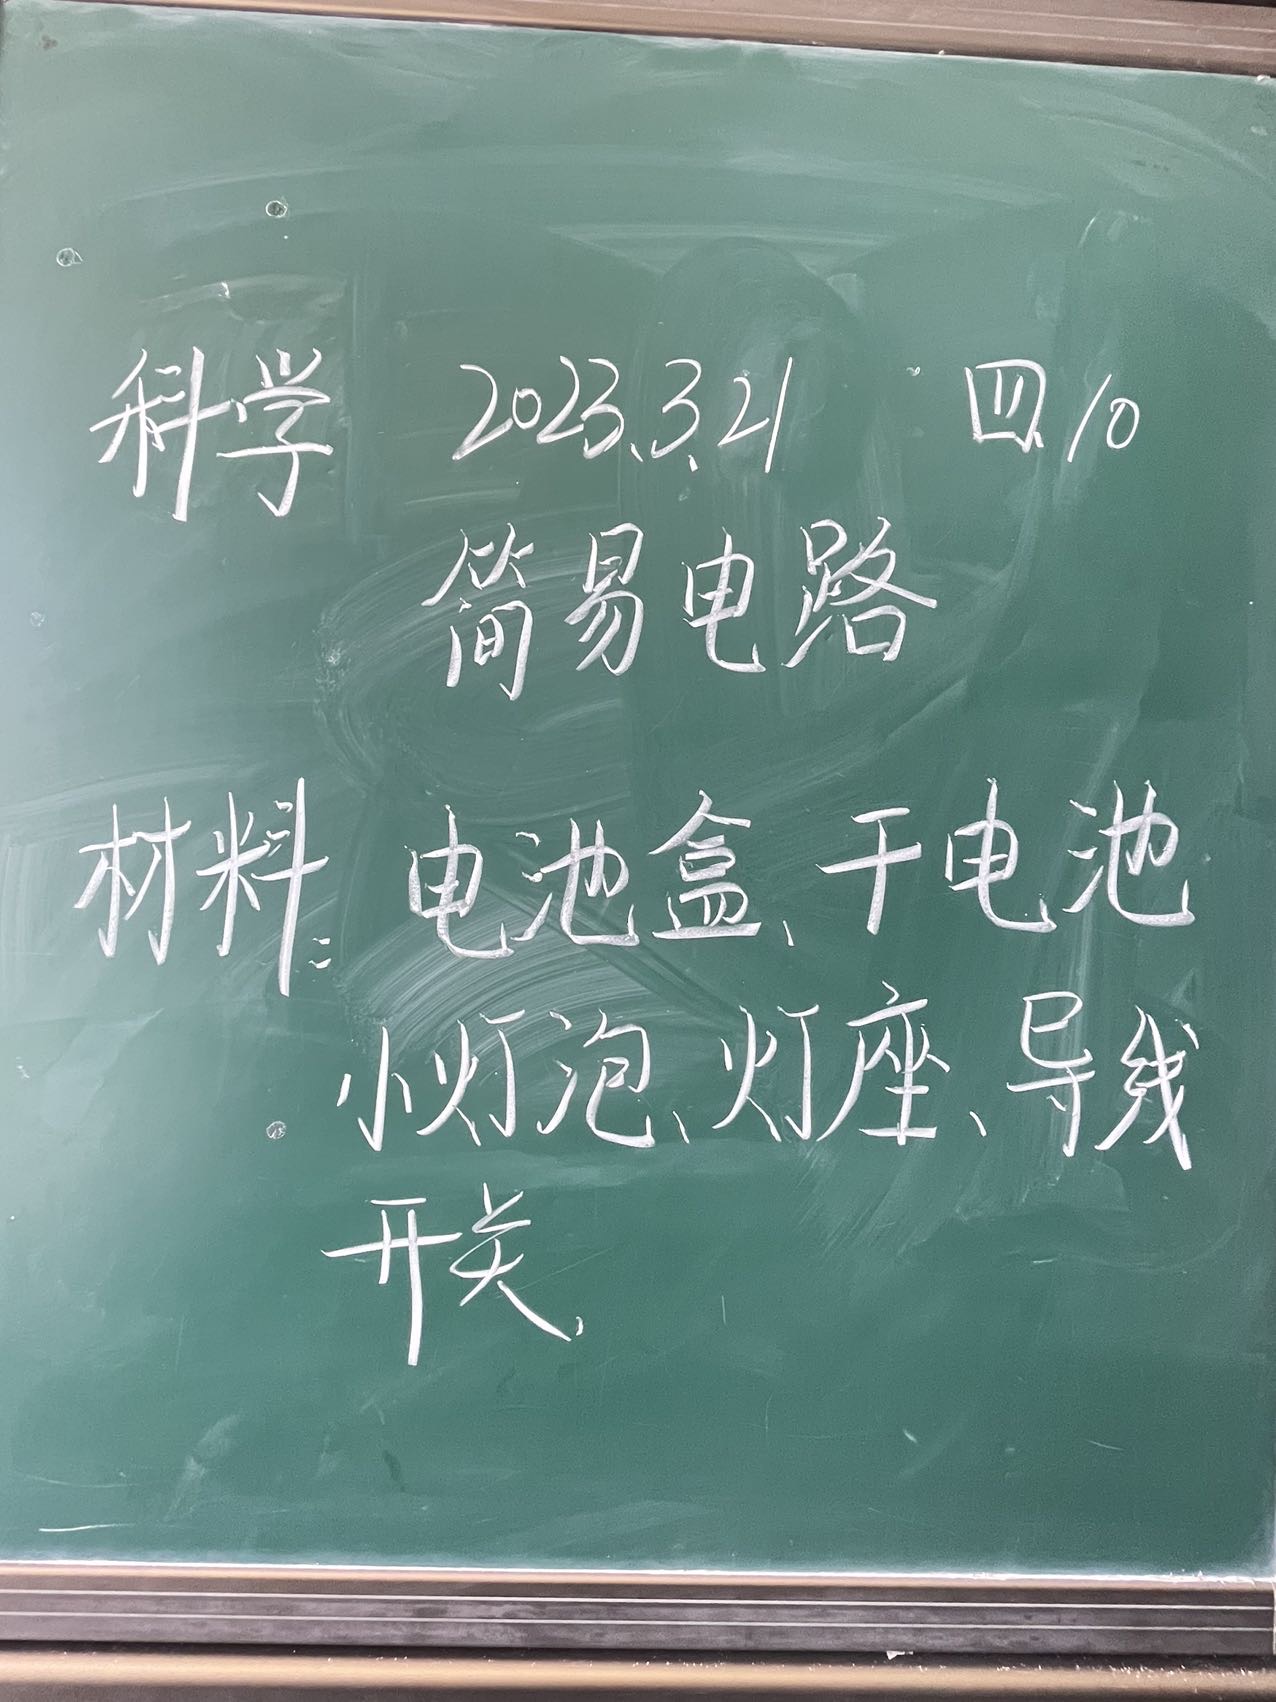 科学 2023.3.21 四.10
简易电路
材料: 电池盒、干电池
小灯泡、灯座、导线
开关、